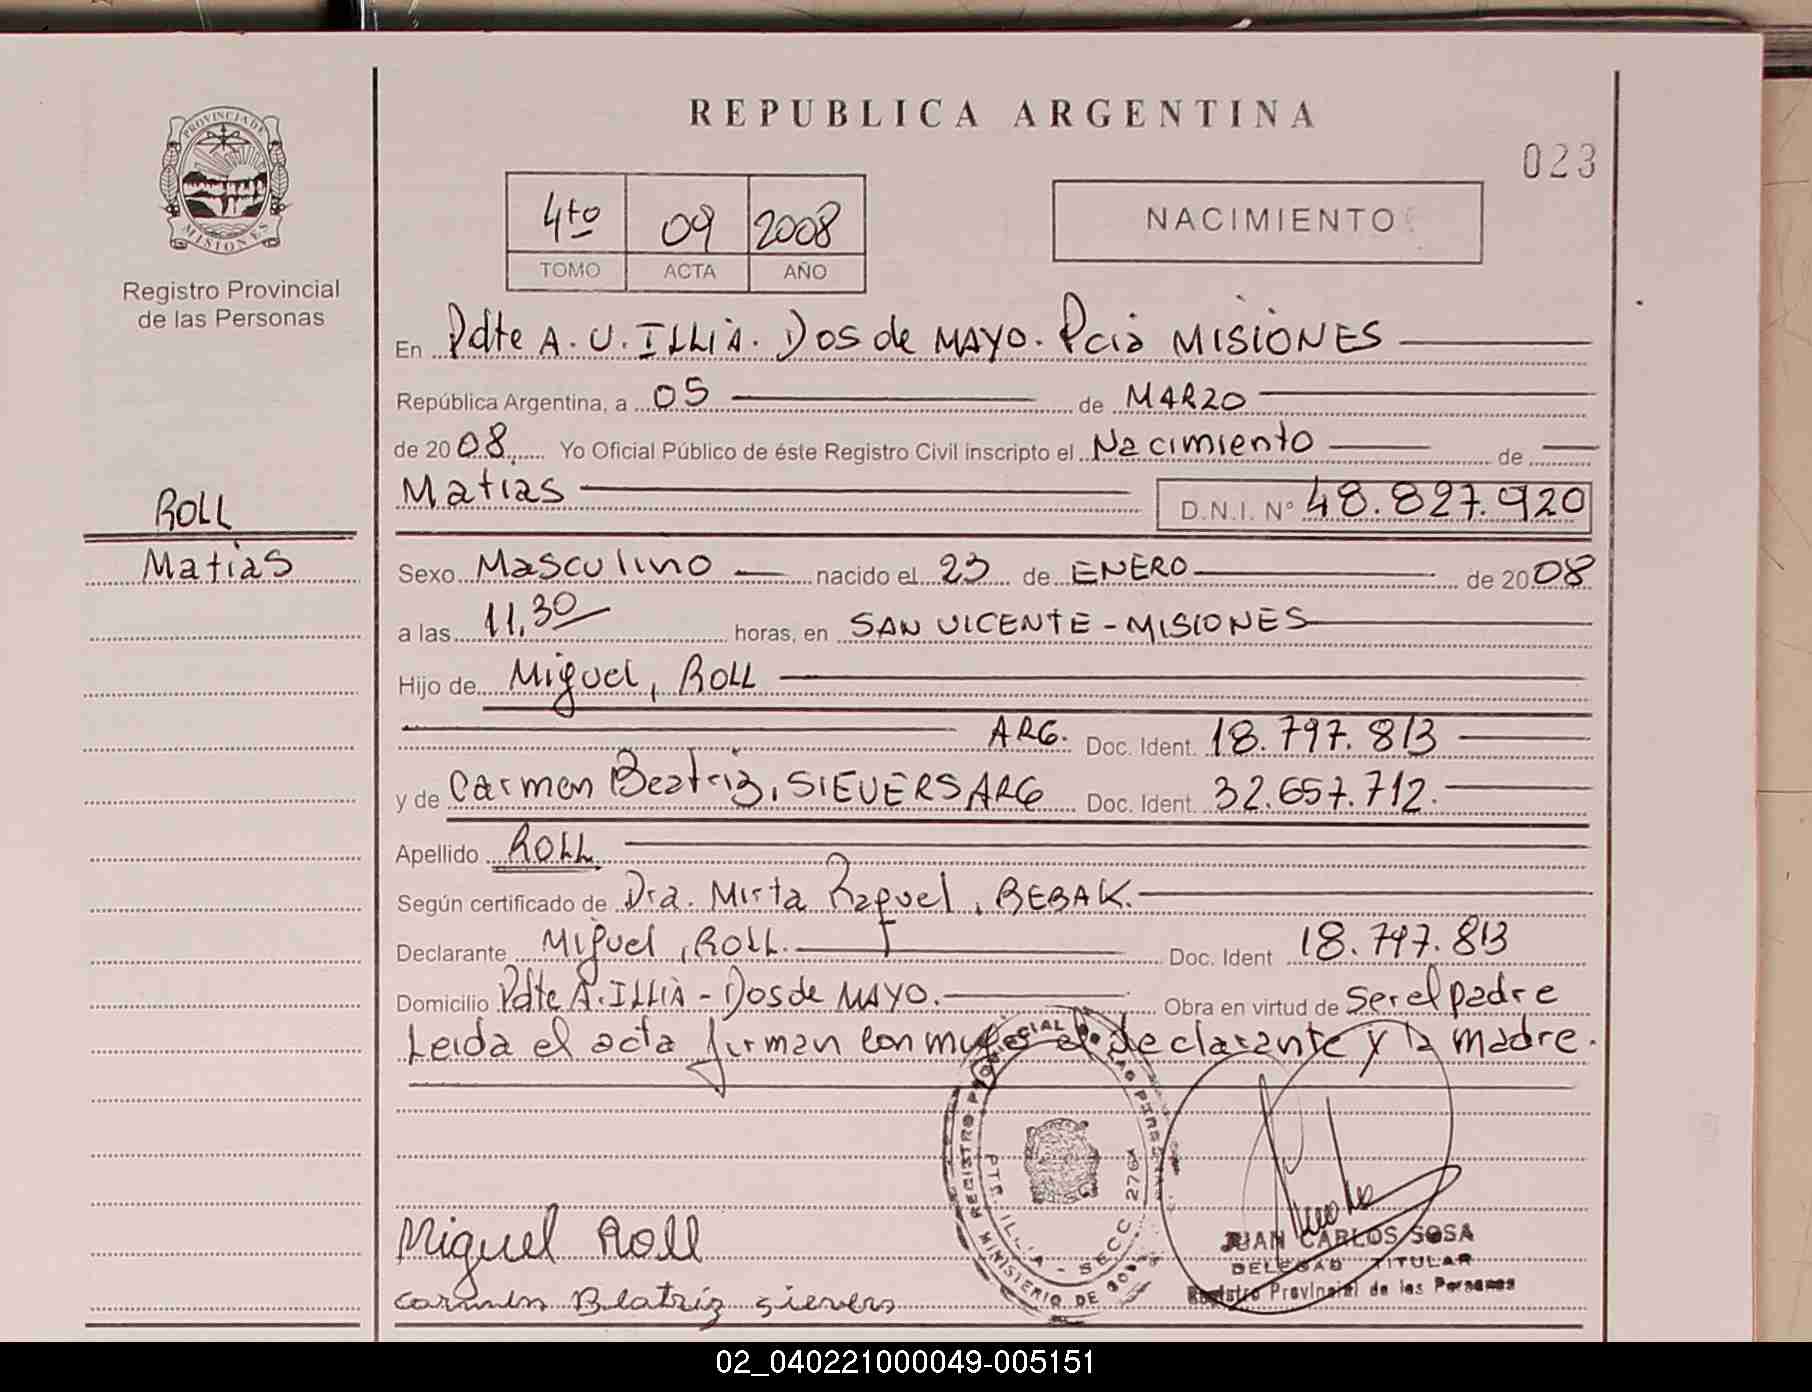 REPUBLICA ARGENTINA
023
PROVINCIA DE
MISIONES
Registro Provincial
de las Personas
4to 09 2008
TOMO ACTA AÑO
NACIMIENTO
En Pdte A. U. ILLIA. Dos de MAYO. Pcia MISIONES
República Argentina, a 05 de MARZO
de 2008 Yo Oficial Público de éste Registro Civil inscripto el Nacimiento de
Matias D.N.I. Nº 48.827.920
ROLL
Matias
Sexo Masculino nacido el 23 de ENERO de 2008
a las 11,30 horas, en SAN VICENTE - MISIONES
Hijo de Miguel, ROLL
ARG. Doc. Ident. 18.797.813
y de Carmen Beatriz, SIEVERS ARG Doc. Ident. 32.657.712.
Apellido ROLL
Según certificado de Dra. Mirta Raquel, BEBAK.
Declarante Miguel, ROLL. Doc. Ident 18.797.813
Domicilio Pdte A. ILLIA - Dos de MAYO. Obra en virtud de ser el padre
Leida el acta firman conmigo el declarante y la madre.
REGISTRO PROVINCIAL DE LAS PERSONAS
PTE. ILLIA - SECC. 2764
MINISTERIO DE GOB
Miguel Roll
JUAN CARLOS SOSA
DELEGADO TITULAR
Registro Provincial de las Personas
Carmen Beatriz sievers
02_040221000049-005151